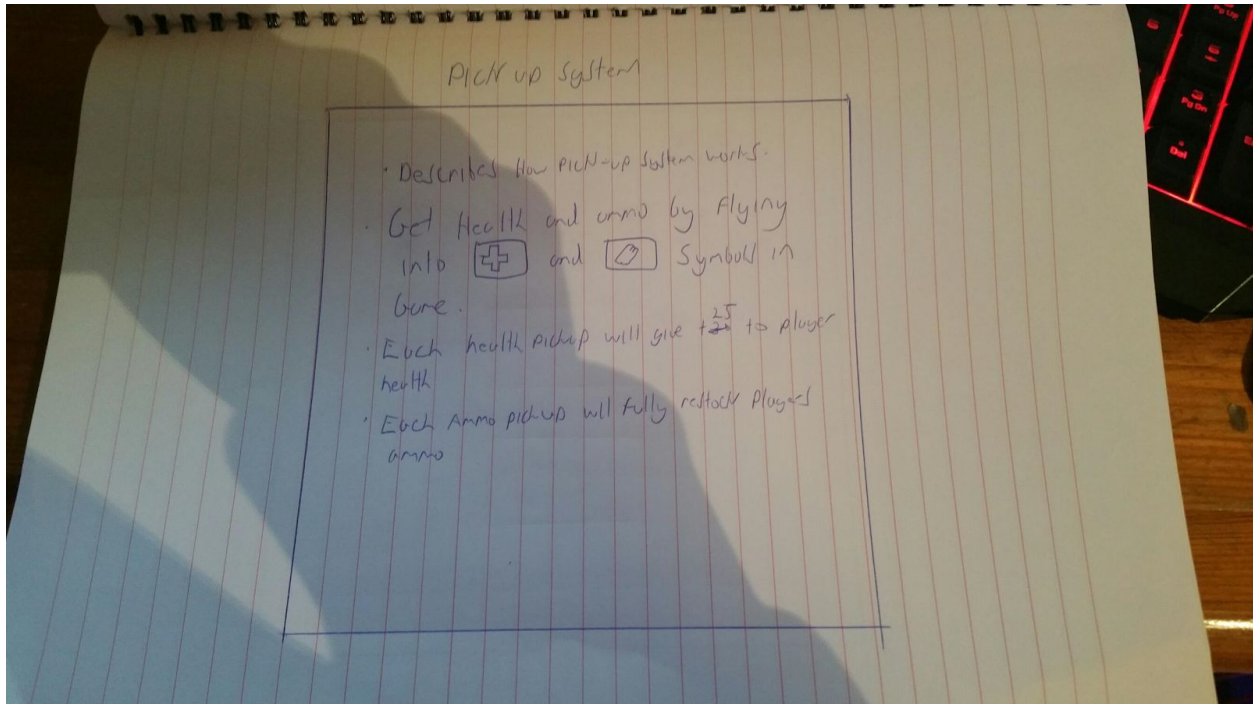 Pick up System
· Describes How Pick-up System works.
· Get Health and ammo by Flying
into and Symbols in
Game.
· Each health pickup will give +25 to player
health
· Each Ammo pick-up will fully restock players
ammo
Pg Up
Pg Dn
Del